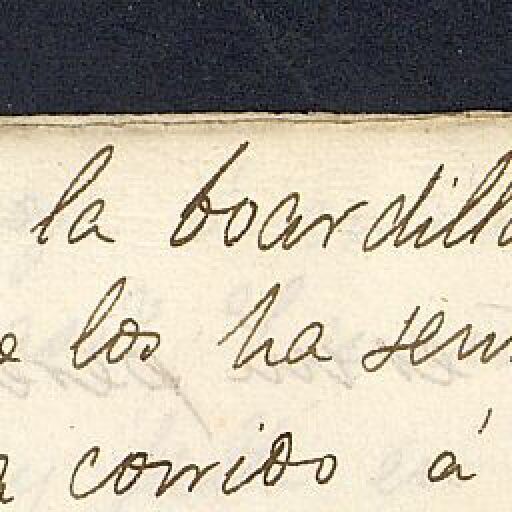 la boardill
los ha sen
corrido á